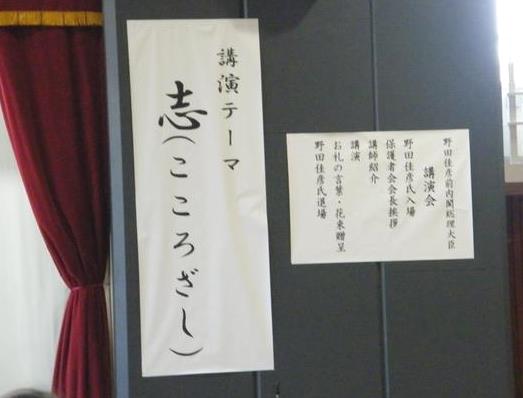 講演テーマ
志(こころざし)
野田佳彦前内閣総理大臣
講演会
野田佳彦氏入場
保護者会会長挨拶
講師紹介
講演
お礼の言葉・花束贈呈
野田佳彦氏退場